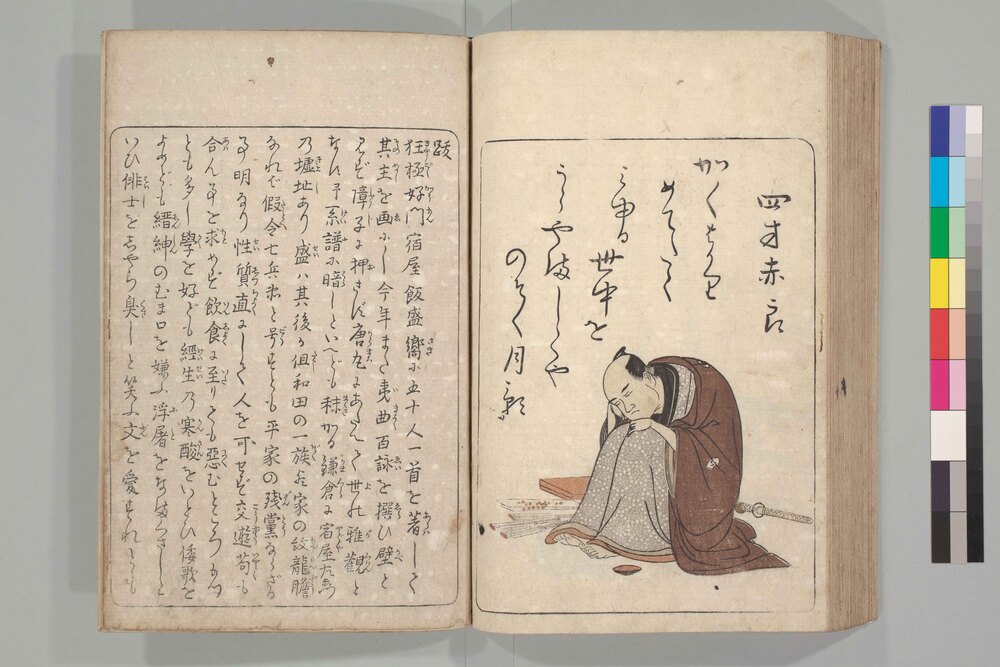 四方赤良
かくばかり
めでたく
みゆる世中を
うらやましくや
のぞく月影
跋
狂極好門宿屋飯盛嚮に五十人一首を著して
其主を画にし今年また夷曲百詠を撰ひ壁と
障子に押さす唐丸にあたへて世の雅観と
なん予系譜に暗しといへども稀かる鎌倉に宿屋左衛門
乃墟址あり盛は其後か但和田の一族歟家の紋龍膽
なれば假令七兵衛と号すとも平家の残黨ならざる
事明なり性質直にして人を可せず交遊苟も
合ん事を求めず飲食に至りても惡むところも
とも多し學を好ども經生乃寒酸をいとひ倭歌を
よめども縉紳のむま口を嫌ふ浮屠をなまぐさしと
いひ俳士をしやら臭しと笑ふ文を愛すれども